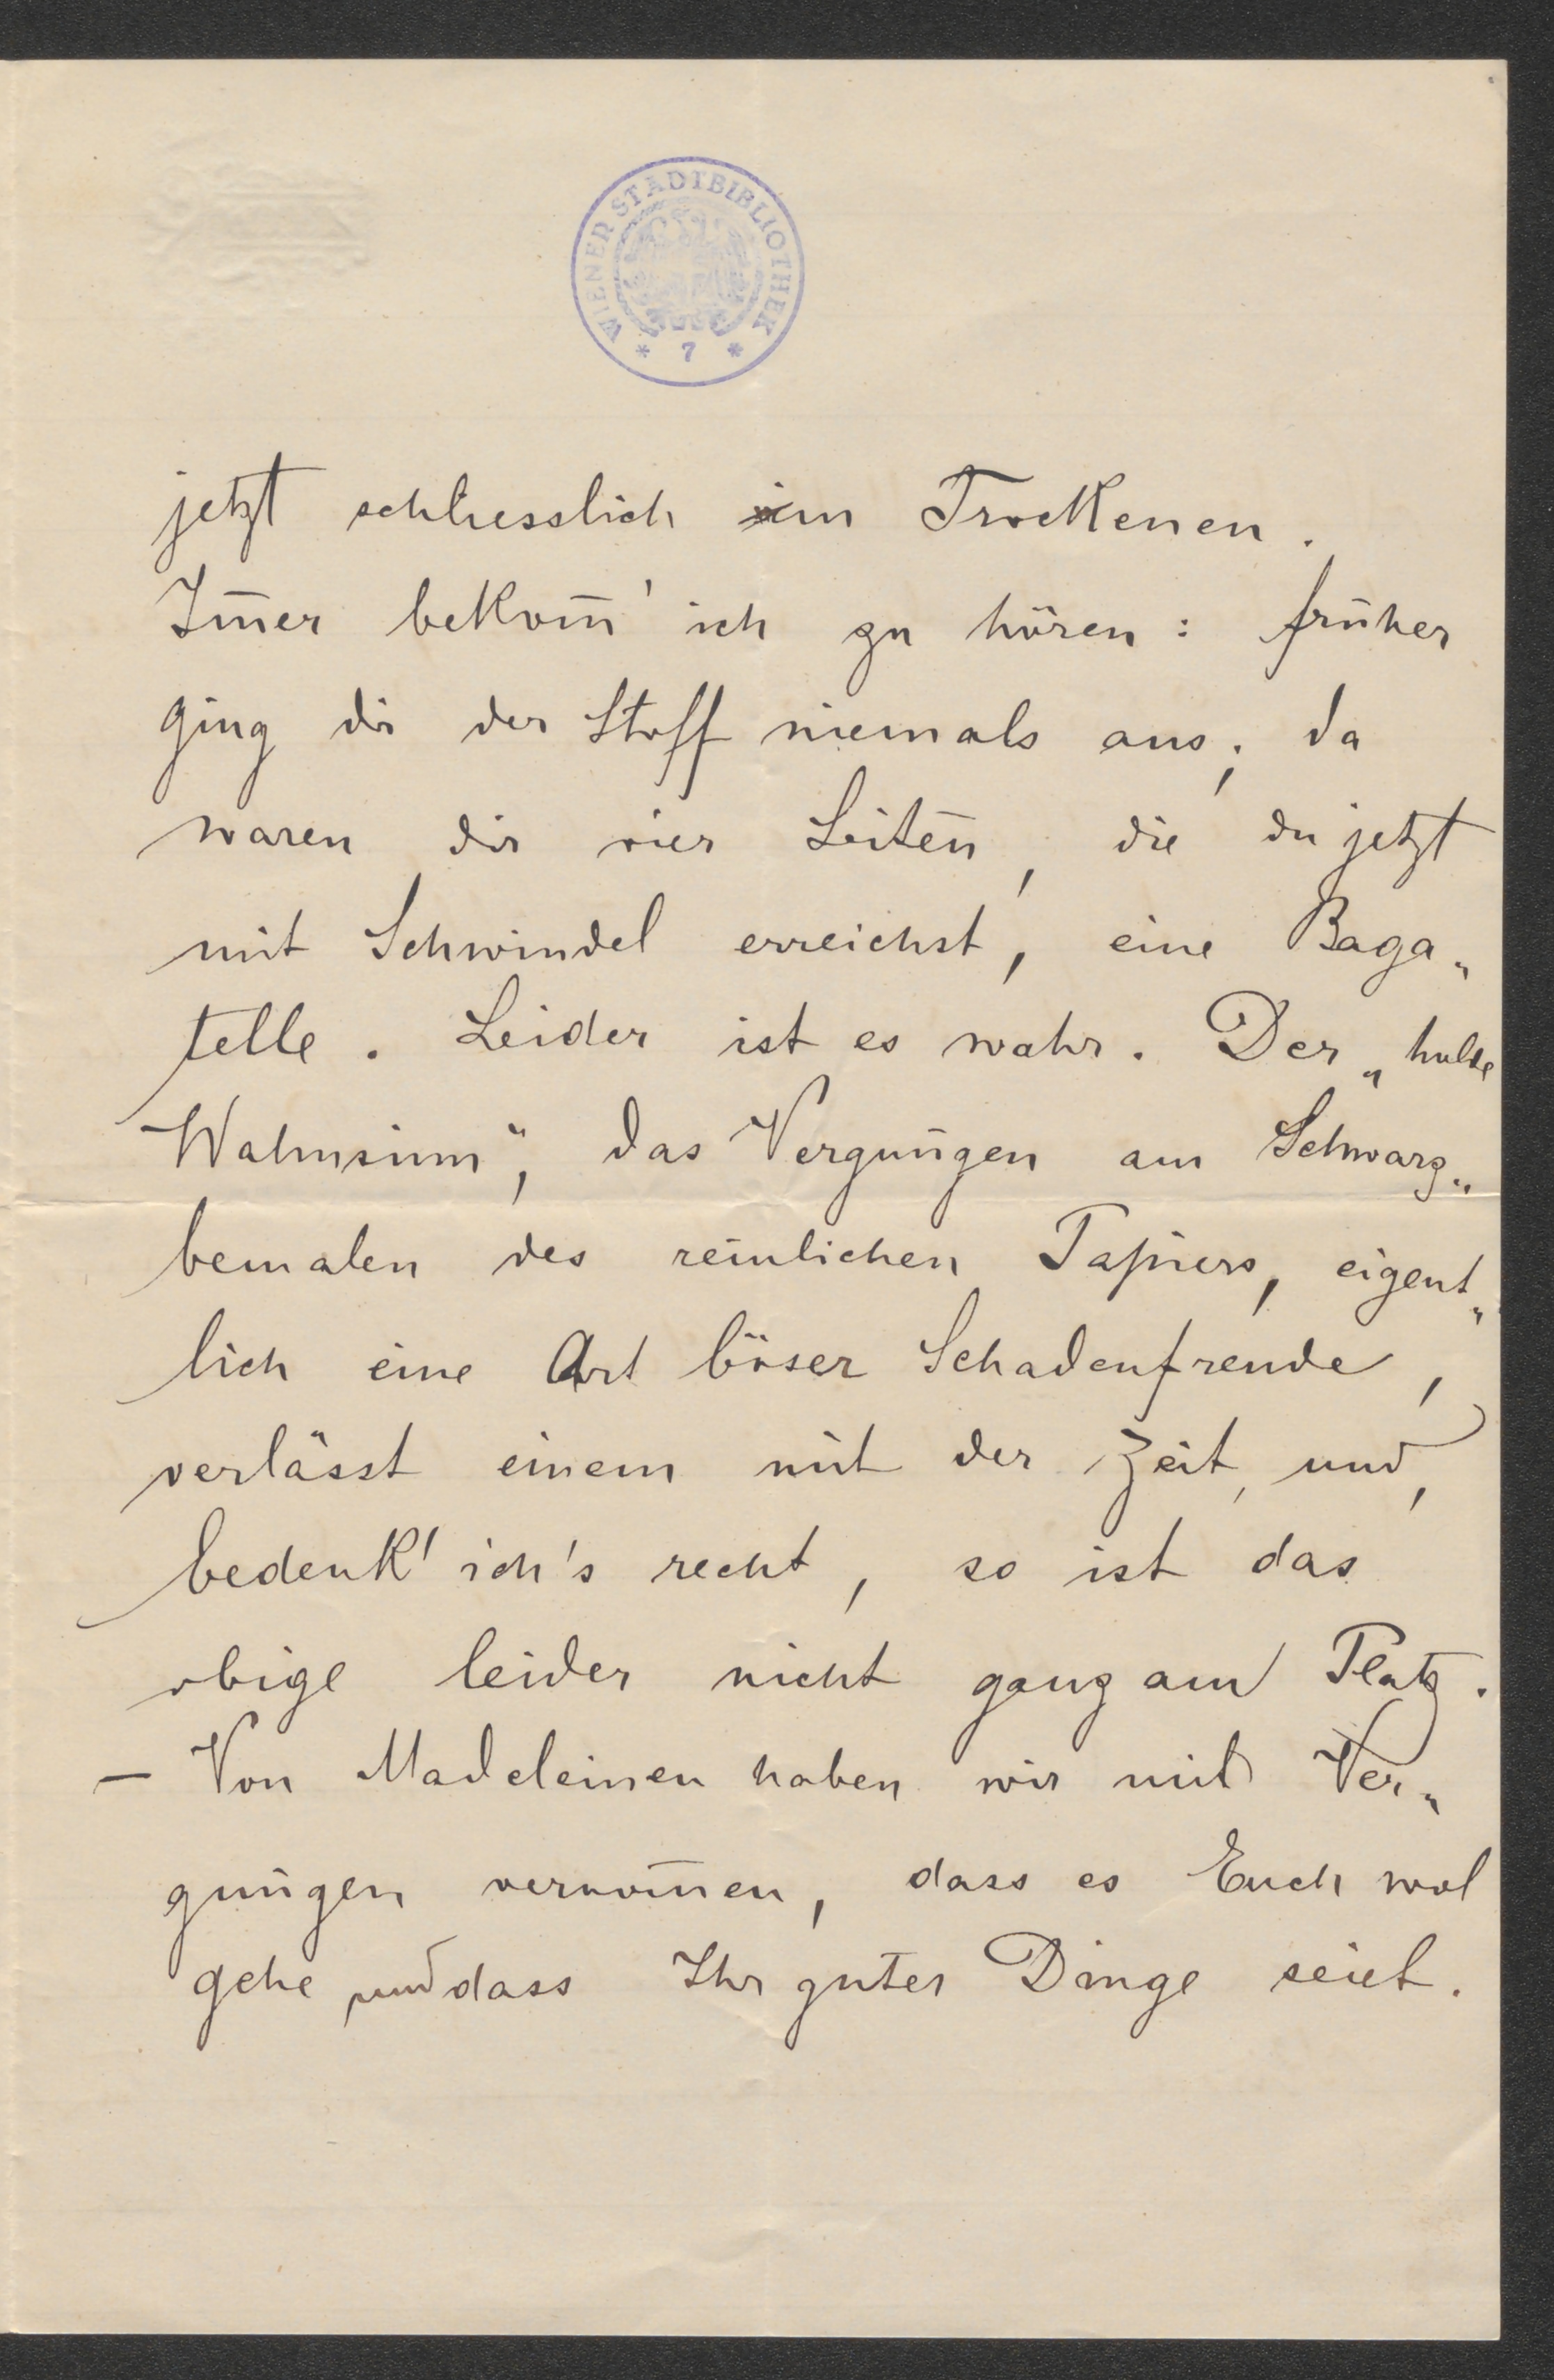 WIENER STADTBIBLIOTHEK
* 7 *
jetzt schliesslich im Trockenen.
Im̄er bekom̄' ich zu hören: früher
ging dir der Stoff niemals aus; da
waren dir vier Seiten, die du jetzt
mit Schwindel erreichst, eine Baga„
telle. Leider ist es wahr. Der „holde
Wahnsinn“, das Vergnügen am Schwarz„
bemalen des reinlichen Papiers, eigent„
lich eine Art böser Schadenfreude,
verlässt einem mit der Zeit, und,
bedenk' ich's recht, so ist das
obige leider nicht ganz am Platz.
— Von Madeleinen haben wir mit Ver„
gnügen vernom̄en, dass es Euch wol
gehe und dass Ihr guter Dinge seiet.